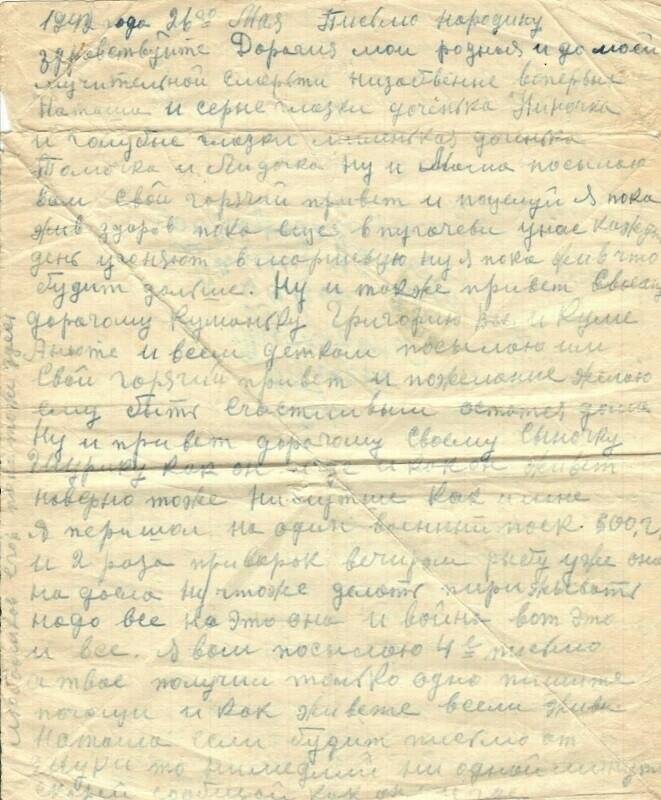 1942 года 26го Мая Письмо народину
здравствуйте Дорогия мои родныя и до моей
мучительной смерьти низабвеные впервых
Наташа и серые глазки доченька Ниночка
и голубые глазки доинька
Томочка и Лидочка Ну и Мама посылаю
вам свой горячий привет и поцелуй Я пока
жив здоров пока еще в пугачеви унас кажды
день угоняют вмаршевую ну я пока жив что
будит дальше. Ну и также привет своему
дорагому Куманьку Григорию и Куме
Анюте и всем деткам посылаю им
Свой горячий привет и пожелание желаю
ему быть счастливым остатся дома
Ну и привет дорагому своему сыночку
Шурику как он и как он живет
наверно тоже нилутше как и мне
Я перишол на один военный поек 600,г,
и 2 раза приварок вечиром рыбу уже она
на доела ну чтоже делать пирижывать
надо все на это она и война вот это
и все. Я вам посылаю 4е писмо
а твае получил только одно пишите
почащи и как живете всели живы
Наташа если будит письмо от
Шури то нимедлий ни одной минуты
скарей сообщай как он и где